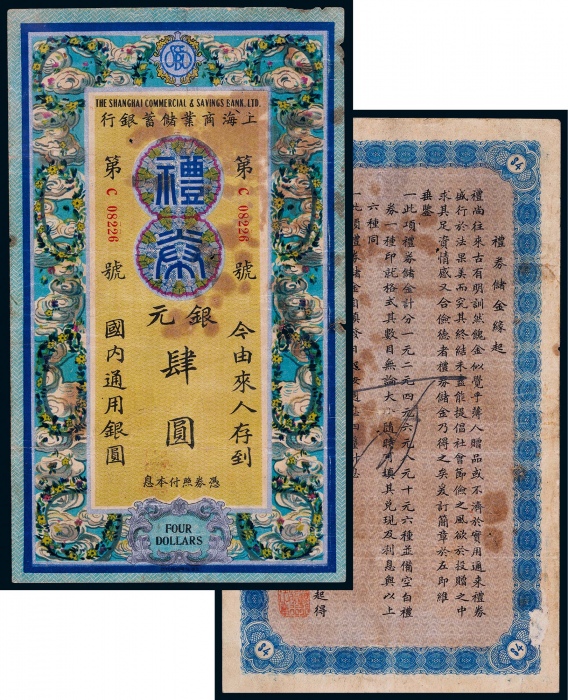 SCSB
THE SHANGHAI COMMERCIAL & SAVINGS BANK. LTD.
行銀蓄儲業商海上
禮券
第 C 08226 號
第 C 08226 號
元銀
肆圓
今由來人存到
國內通用銀圓
息本付照券憑
FOUR
DOLLARS
禮券儲金緣起
禮尚往來古有明訓然餽金似覺乎薄人贈品或不濟於實用通來禮券
盛行於法果美而究其終結未盡能提倡社會節儉之風欲於投贈之中
求其足資情感又合儉德者禮券儲金乃得之矣爰訂簡章於左即維
垂鑒
一此項禮券儲金計分一元二元四元六元八元十元六種並備空白禮
券一種印就格式其數目無論大小隨時可填其兑現及利息與以上
六種同
起得
4$
4$
4$